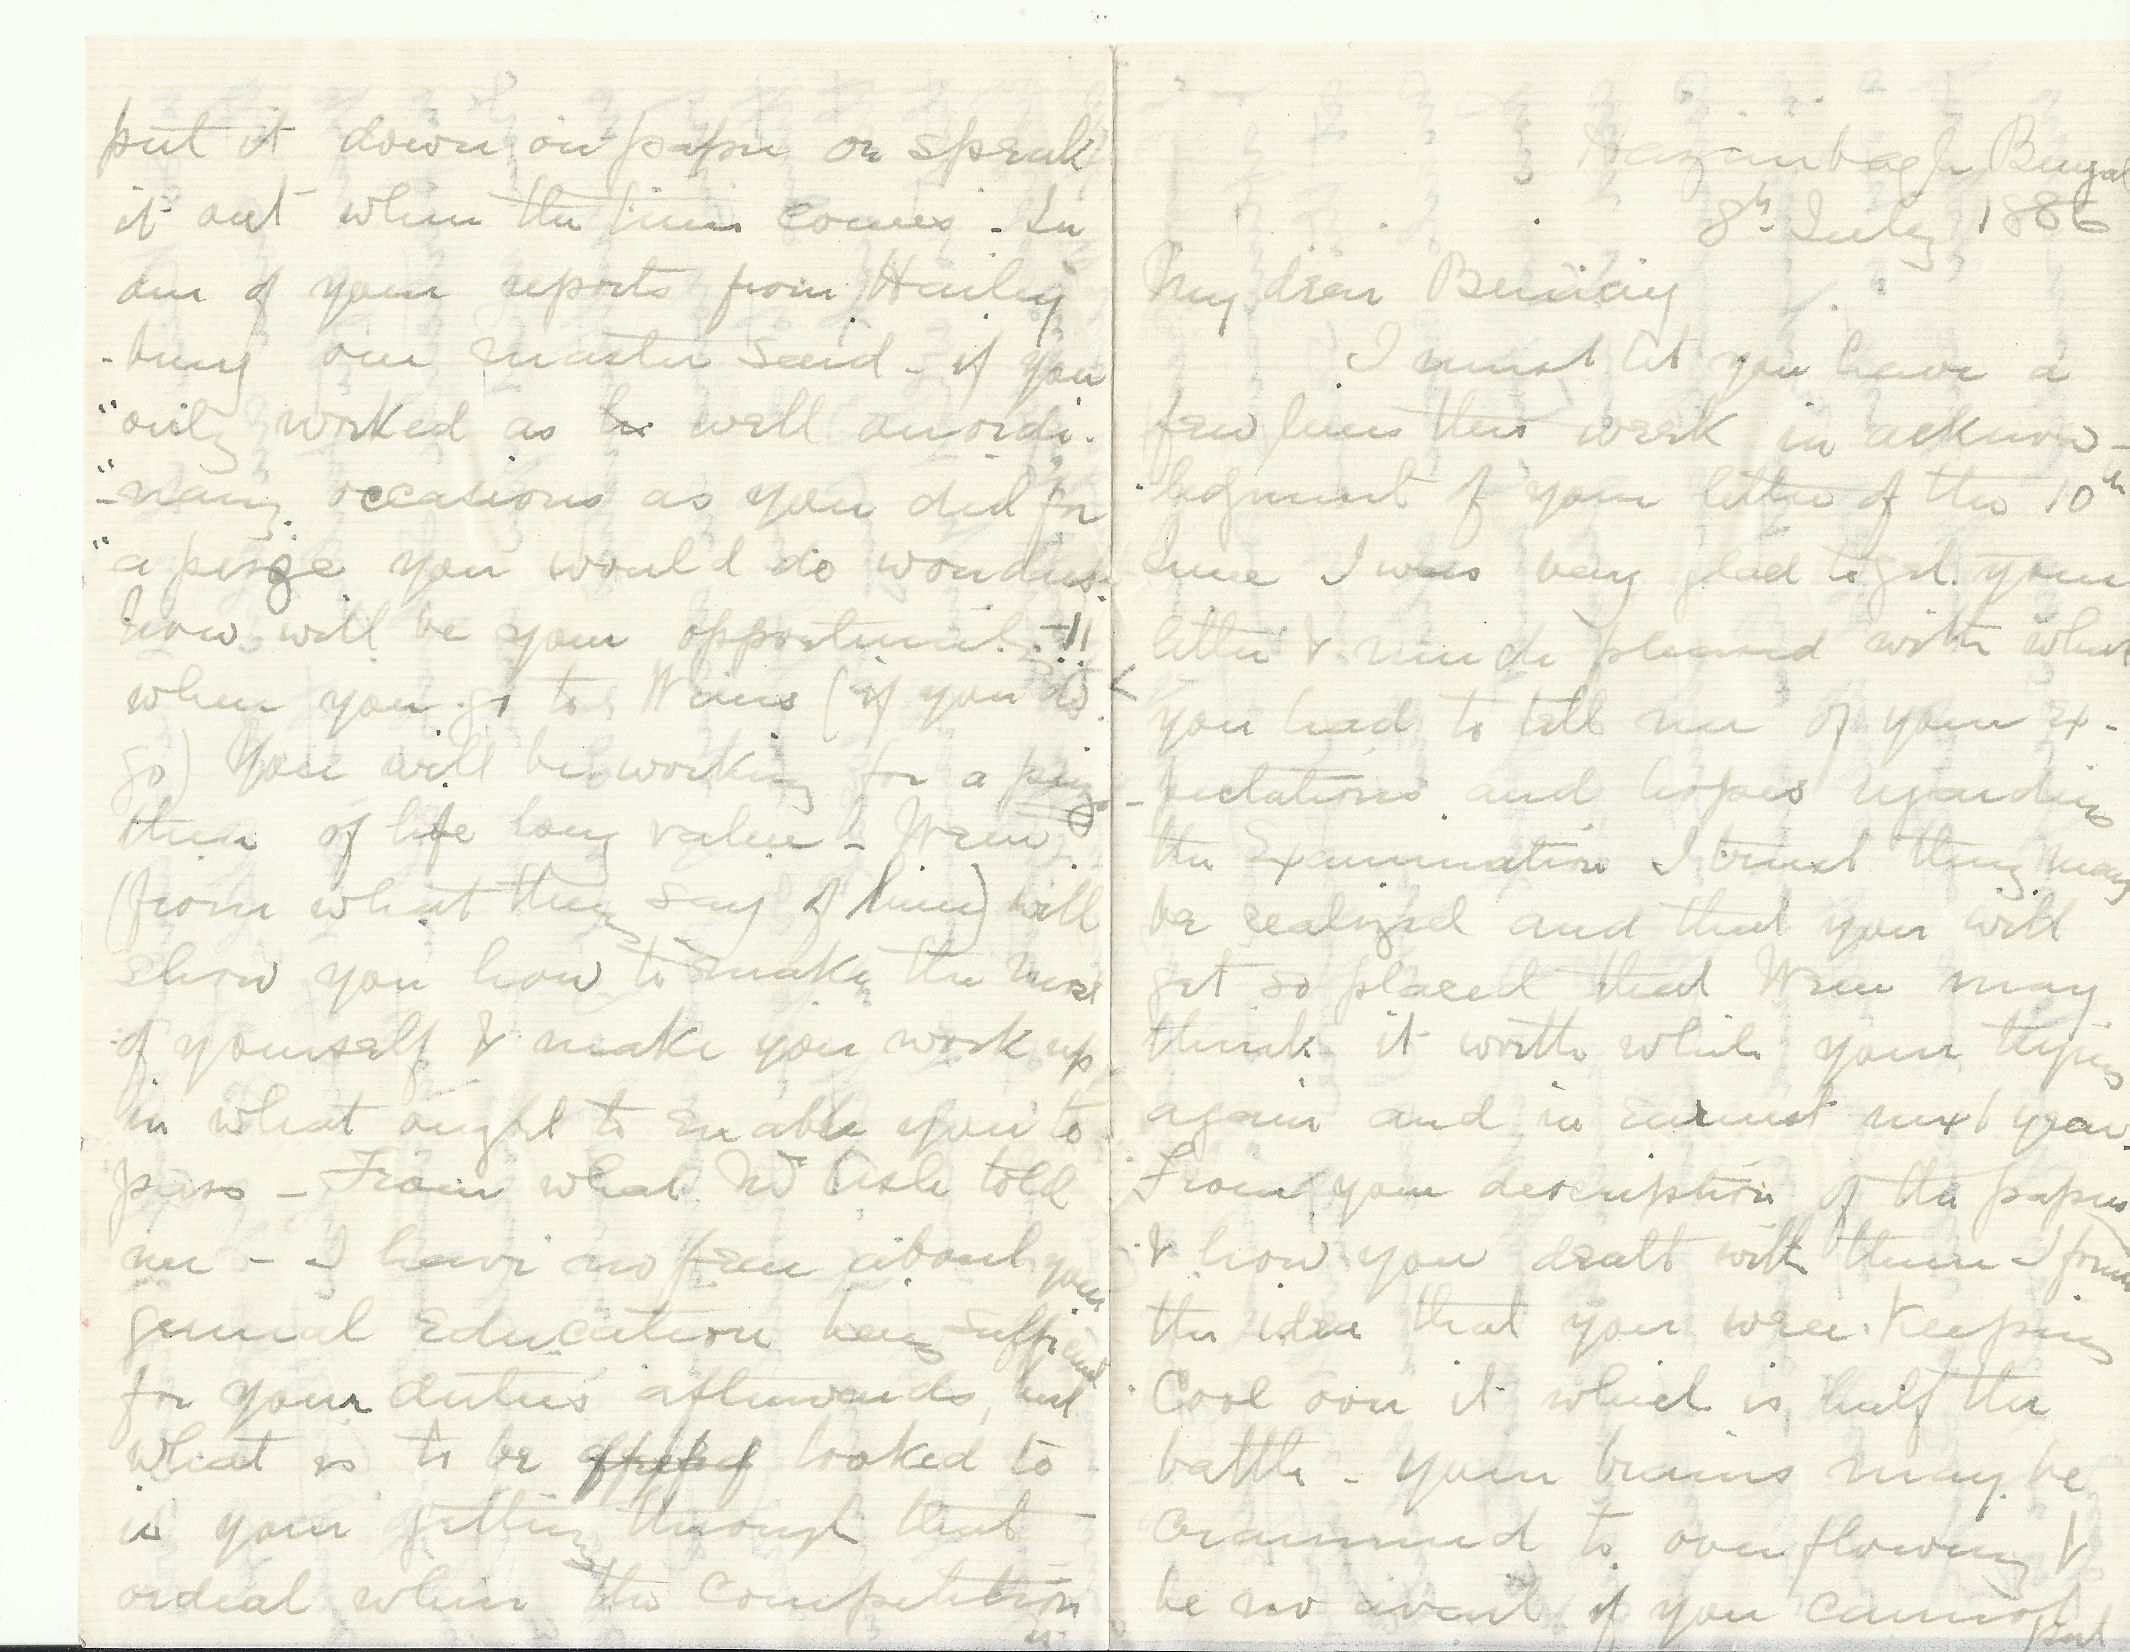 Hazaribagh Bengal
8th July 1886
My dear Benny
I must let you have a
few lines this week in acknow-
ledgment of your letter of the 10th
June I was very glad to get your
letter & much pleased with what
you had to tell me of your ex-
-pectations and hopes regarding
the Examination I trust they may
be realized and that you will
get so placed that Wren may
think it worth while your trying
again and in earnest next year.
From your description of the papers
& how you dealt with them I form
the idea that you were keeping
Cool over it which is half the
battle - your brains may be
crammed to over flowing &
be no avail if you cannot
put
put it down on paper or speak
it out when the time comes. In
one of your reports from Hailey
-bury one master said - if you
"only worked as well on ordi-
"-nary occasions as you did for
"a prize you would do wonders.
now will be your opportunity!!
when you go to Wrens (if you do
go) You will be working for a prize
then of life long value - Wren
(from what they say of him) will
show you how to make the most
of yourself & make you work up
in what ought to enable you to
pass - From what Mr Ash told
me - I have no fear about your
general Education being sufficient
for your duties afterwards, but
what is to be looked to
is your getting through that
ordeal when the Competition
is